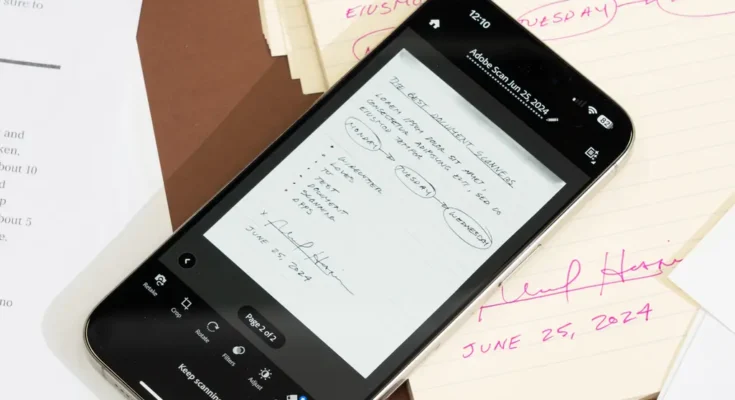 sure to
and
ken,
bout 10
d
p
bout 5
e.
no
EIUSMO
TUESDAY
12:10
82
Adobe Scan Jun 25, 2024
THE BEST DOCUMENT SCANNERS
LOREM IPSUM DOLOR SIT AMET,
CONSECTETUR ADIPISCING ELIT, SED DO
EIUSMOD TEMPOR
MONDAY TUESDAY WEDNESDAY
WIRECUTTER
LOVES
TO
TEST
DOCUMENT
SCANNING
APPS
X
JUNE 25, 2024
Page 2 of 2
Retake
Crop
Rotate
Filters
Adjust
Keep scannin
JUNE 25, 2024